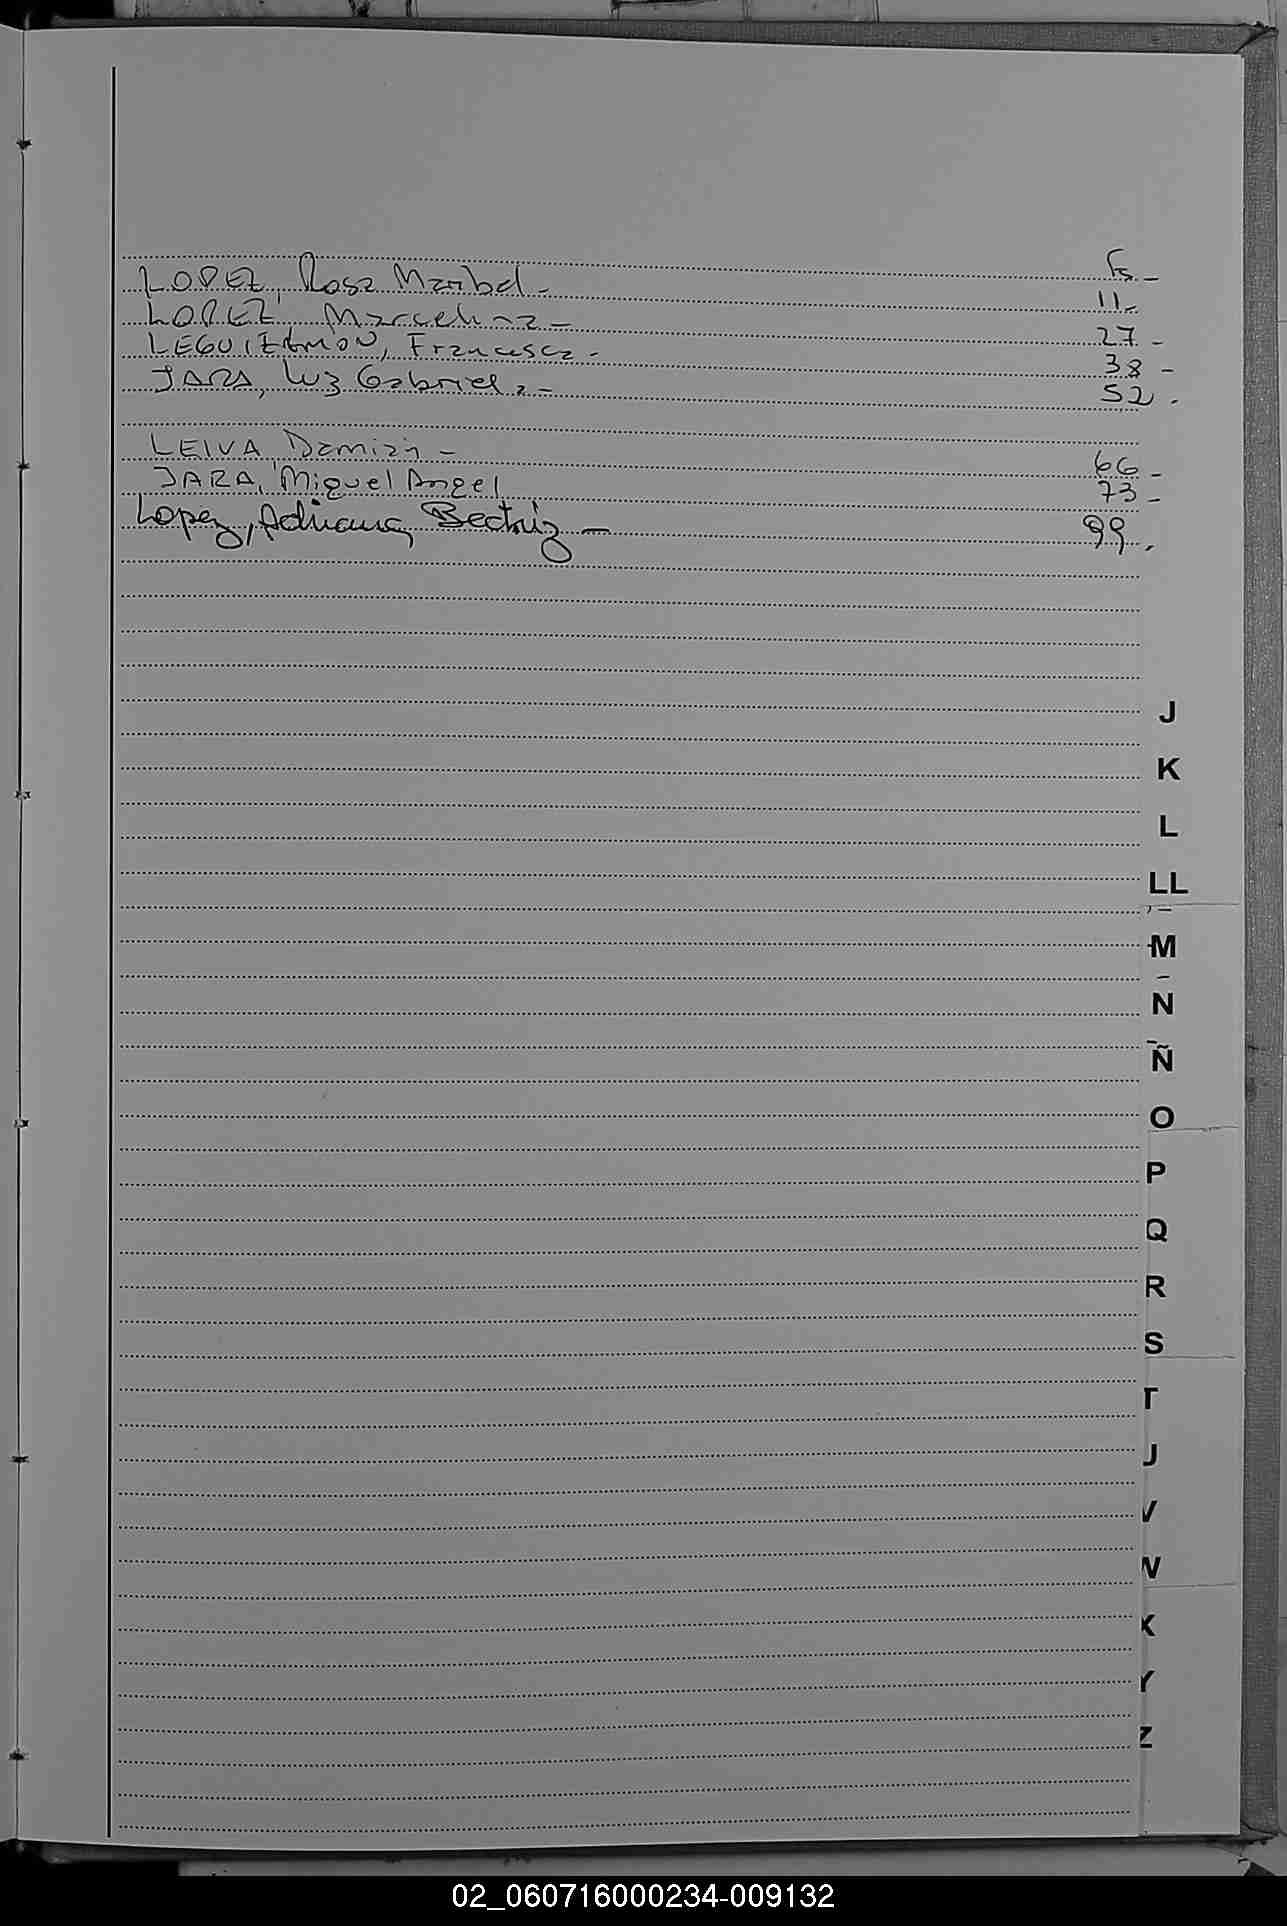 Fs-
LOPEZ, Rosa Maribel- 11-
LOPEZ, Marcelina- 27-
LEGUIZAMON, Francisca- 38-
JARA, Luz Gabriela- 52-
LEIVA, Damián- 66-
JARA, Miguel Angel 73-
Lopez, Adriana Beatriz- 99.
J
K
L
LL
M
N
Ñ
O
P
Q
R
S
T
U
V
W
X
Y
Z
02_060716000234-009132